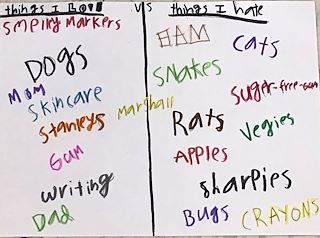 things I love vs things I hate
smelly markers
Dogs
Mom
skincare
stanleys
Gum
writing
Dad
marshall
HAM
cats
snakes
suger-free-gum
Rats
vegies
Apples
sharpies
Bugs
CRAYONS